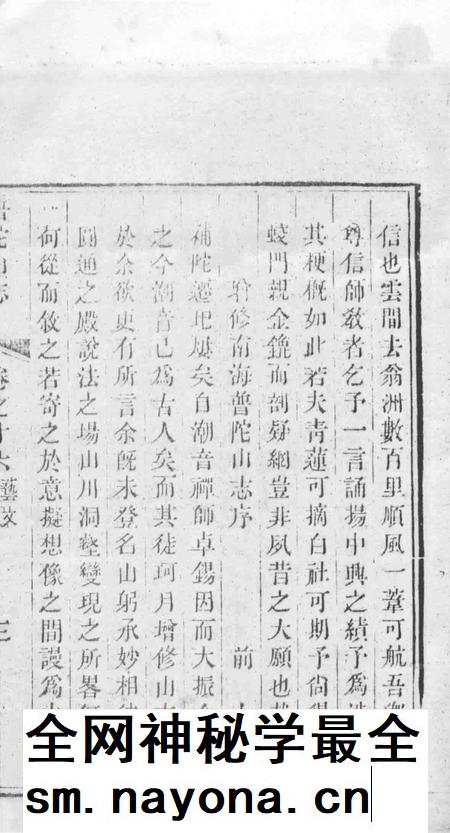 信也雲間去翁洲數百里順風一葦可航吾
尊信師敎者乞予一言誦揚中興之績予爲
其梗概如此若夫靑蓮可摘白社可期予尙
蛟門親金鏡而剖疑網豈非夙昔之大願也
修南海普陀山志序 前
補陀 矣自潮音禪師卓錫因而大振
之今潮音已爲古人矣而其徒珂月增修山
於余欲更有所言余旣未登名山躬承妙相
圓通之殿說法之場山川洞壑變現之所畧
何從而敘之若寄之於意擬想像之間謾爲
普陀山志 卷之十六 藝文 三
全网神秘学最全
sm.nayona.cn